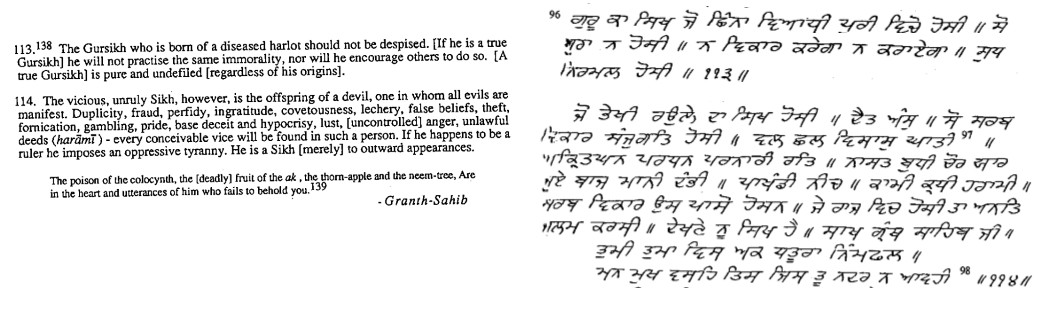 113.138 The Gursikh who is born of a diseased harlot should not be despised. [If he is a true
Gursikh] he will not practise the same immorality, nor will he encourage others to do so. [A
true Gursikh] is pure and undefiled [regardless of his origins].
114. The vicious, unruly Sikh, however, is the offspring of a devil, one in whom all evils are
manifest. Duplicity, fraud, perfidy, ingratitude, covetousness, lechery, false beliefs, theft,
fornication, gambling, pride, base deceit and hypocrisy, lust, [uncontrolled] anger, unlawful
deeds (harāmī) - every conceivable vice will be found in such a person. If he happens to be a
ruler he imposes an oppressive tyranny. He is a Sikh [merely] to outward appearances.
The poison of the colocynth, the [deadly] fruit of the ak, the thorn-apple and the neem-tree, Are
in the heart and utterances of him who fails to behold you.139
- Granth-Sahib
96 ਗੁਰੂ ਕਾ ਸਿਖ ਜੋ ਛਿੰਨਾ ਵਿਆਧੀ ਪਰੀ ਵਿਚੋ ਹੋਸੀ ॥ ਸੋ
ਬੁਰਾ ਨ ਹੋਸੀ ॥ ਨ ਵਿਕਾਰ ਕਰੇਗਾ ਨ ਕਰਾਏਗਾ ॥ ਸੁਧ
ਨਿਰਮਲ ਹੋਸੀ ॥ ੧੧੩॥
ਜੋ ਤੇਖੀ ਰਉਲੇ ਦਾ ਸਿਖ ਹੋਸੀ ॥ ਦੈਤ ਅੰਸੁ ॥ ਸੋ ਸਰਬ
ਵਿਕਾਰ ਸੰਜੁਗਤਿ ਹੋਸੀ ॥ ਵਲ ਛਲ ਵਿਸਾਸੁ ਘਾਤੀ 97 ॥
ਅਕਿਰਤਘਨ ਪਰਧਨ ਪਰਨਾਰੀ ਰਤਿ ॥ ਨਾਸਤ ਬੁਧੀ ਚੋਰ ਜਾਰ
ਜੂਏ ਬਾਜ ਮਾਨੀ ਦੰਭੀ ॥ ਪਾਖੰਡੀ ਨੀਚ ॥ ਕਾਮੀ ਕ੍ਰੋਧੀ ਹਰਾਮੀ ॥
ਸਰਬ ਵਿਕਾਰ ਉਸ ਪਾਸੋ ਹੋਸਨ ॥ ਜੇ ਰਾਜ ਵਿਚ ਹੋਸੀ ਤਾ ਅਨਤਿ
ਜੁਲਮ ਕਰਸੀ ॥ ਦੇਖਣੇ ਨੂ ਸਿਖ ਹੈ ॥ ਸਾਖ ਗ੍ਰੰਥ ਸਾਹਿਬ ਜੀ ॥
ਤੁਮੀ ਤੁਮਾ ਵਿਸੁ ਅਕੁ ਧਤੂਰਾ ਨਿੰਮਫਲੁ ॥
ਮਨ ਮੁਖ ਵਸਹਿ ਤਿਸੁ ਜਿਸ ਤੂ ਨਦਰ ਨ ਆਵਹੀ 98 ॥੧੧੪॥